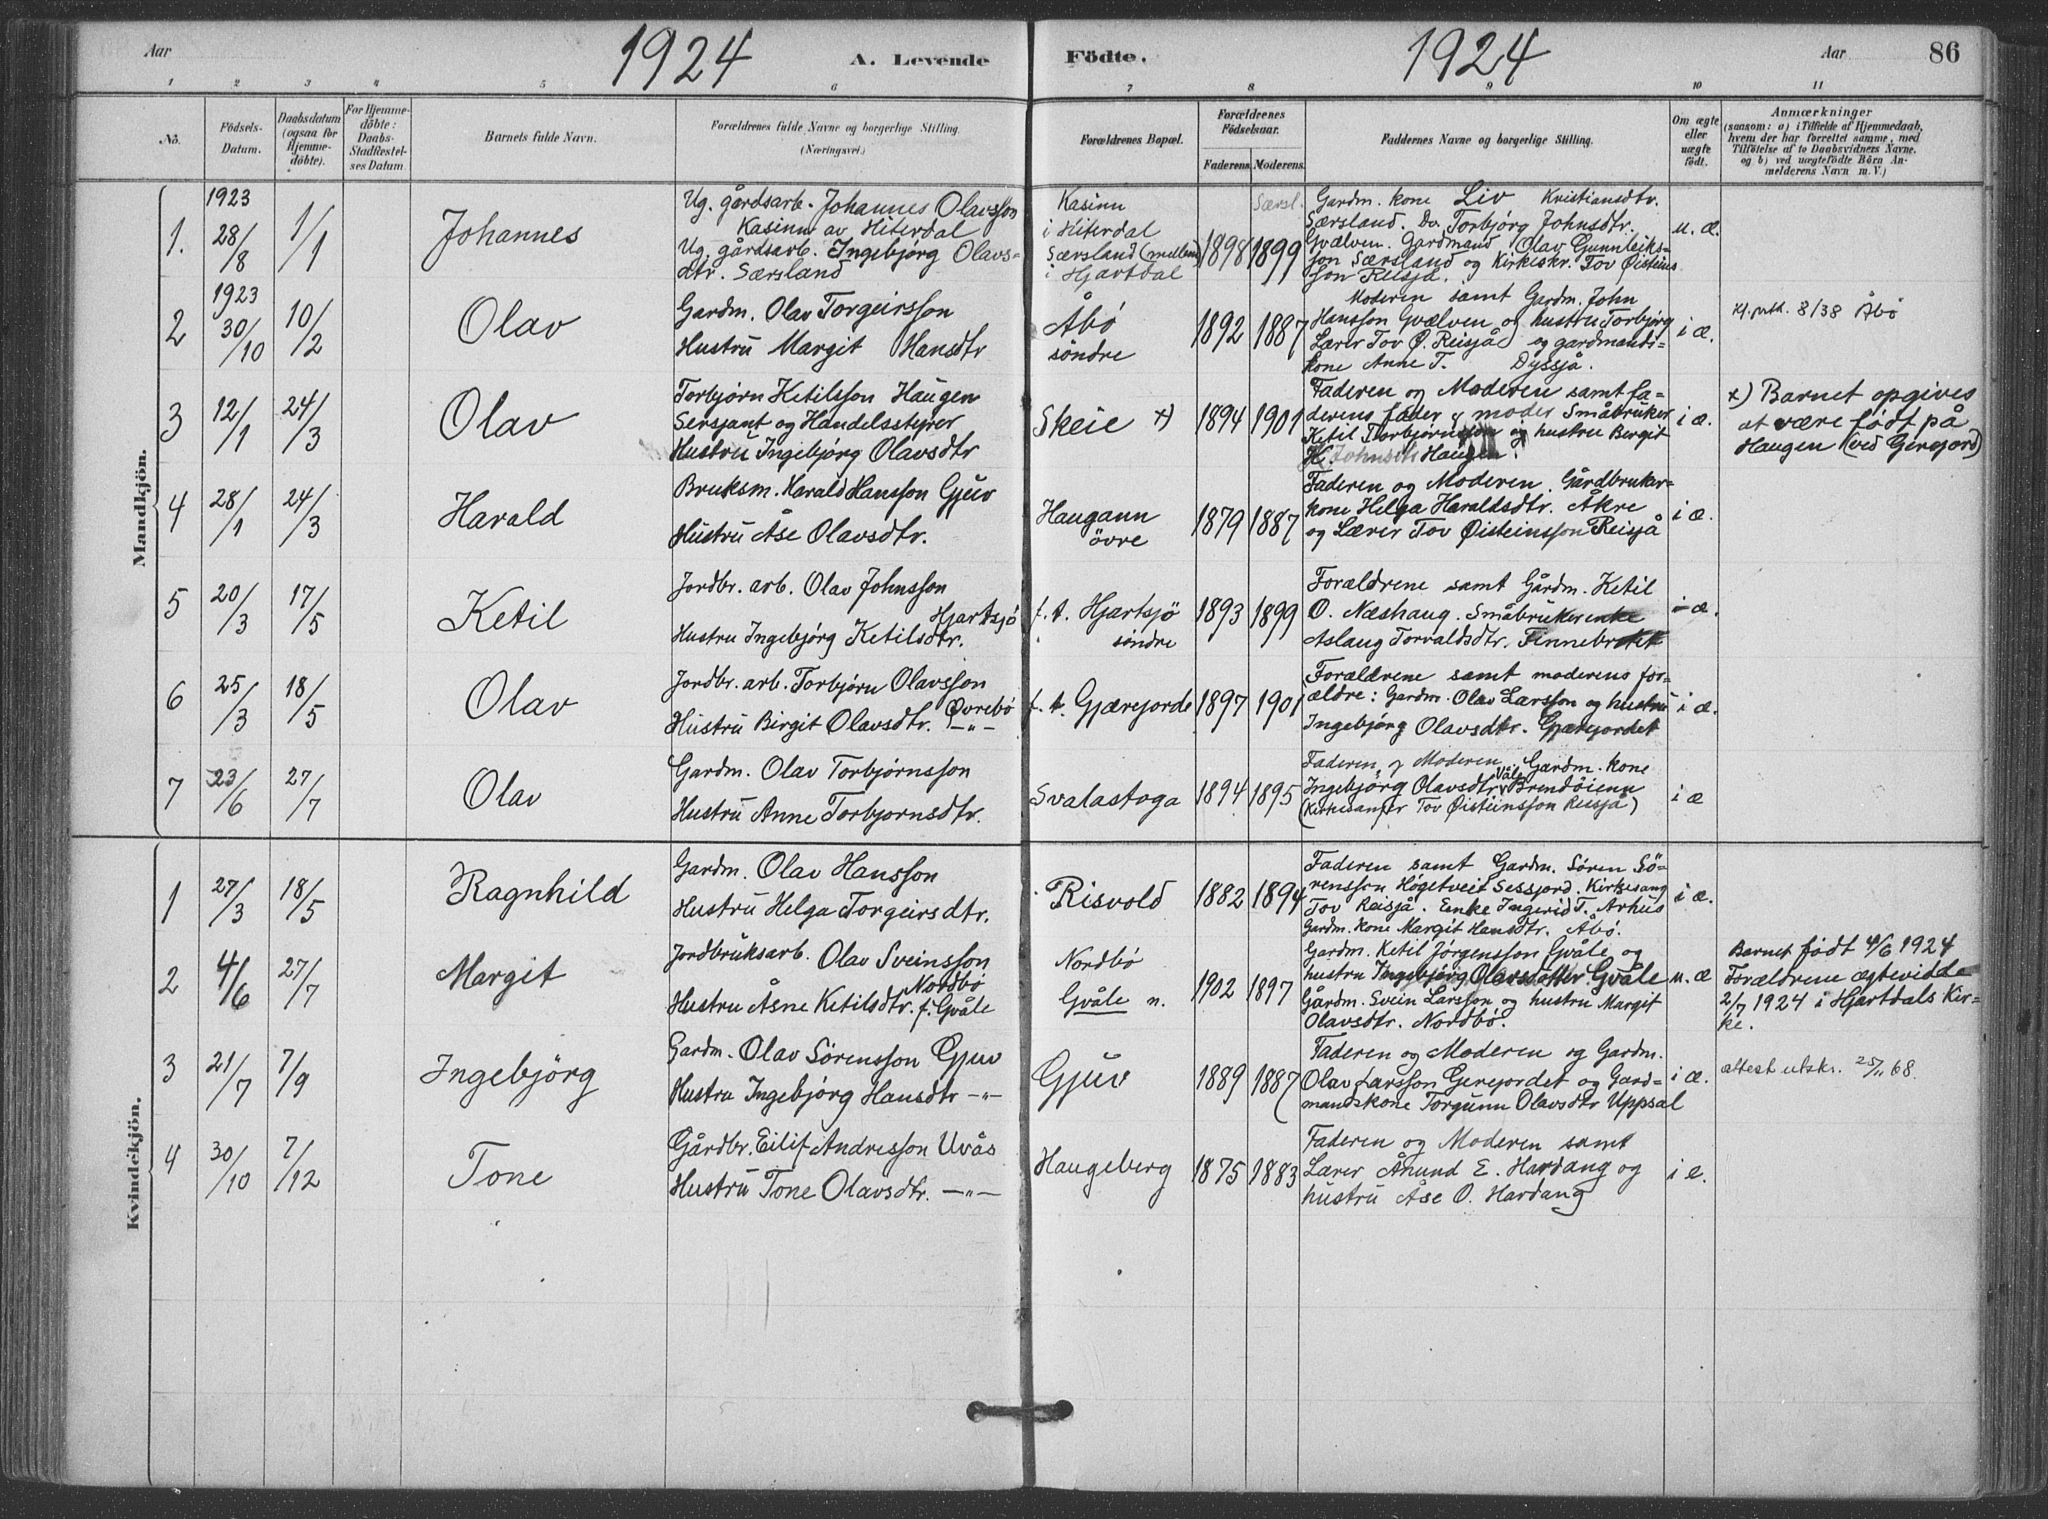 Aar 1924 A. Levende Födte. 1924 Aar 86
1 2 3 4 5 6 7 8 9 10 11
No.
Födsels-
Datum.
Daabsdatum
(ogsaa for
Hjemme-
döbte).
For Hjemme-
döbte:
Daabs-
Stadfæstel-
ses Datum.
Barnets fulde Navn.
Forældrenes fulde Navne og borgerlige Stilling.
(Næringsvei.)
Forældrenes Bopæl.
Forældrenes
Födselsaar.
Faderens. Moderens.
Faddernes Navne og borgerlige Stilling.
Om ægte
eller
uægte
födt.
Anmærkninger
(saasom: a) i Tilfælde af Hjemmedaab,
hvem der har forrettet samme, med
Tilföielse af to Daabsvidners Navne,
og b) ved uægtefödte Börn An-
melderens Navn m. V.)
Mandkjön.
1. 1923 28/8 1/1 Johannes
Ug. gårdsarb. Johannes Olavsson
Kasinn av Hiterdal
Ug. gårdsarb. Ingebjørg Olavs-
dtr. Særsland
Kasinn
i Hiterdal
Særsland (mellem)
i Hjartdal
1898 1899 Særsl.
Gardm. kone Liv Kristiansdtr.
Særsland. Dv. Torbjørg Johnsdtr.
Gvælven. Gardmand Olav Gunnleiks-
son Særsland og Kirkeskr. Tov Øisteins
son Reisjå.
u. æ.
2 1923 30/10 10/2 Olav
Gardm. Olav Torgeirsson
Hustru Margit Hansdtr
Åbø
søndre
1892 1887
Moderen samt Gardm. John
Hansson Gvælven og hustru Torbjørg
Lærer Tov Ø. Reisjå og gardmands-
kone Anne T. Dyssjå.
i æ.
8/38 Åbø
3 12/1 24/3 Olav
Torbjørn Ketilsson Haugen
Sersjant og Handelsstyrer
Hustru Ingebjørg Olavsdtr
Skeie x)
1894 1901
Faderen og Moderen samt fa-
derens fader og moder Småbruker
Ketil Torbjørnsson og hustru Birgit
H. Johnsen Haugen.
i æ.
x) Barnet opgives
at være født på
Haugen (ved Gerejord)
4 28/1 24/3 Harald
Bruksm. Harald Hansson Gjuv
Hustru Åse Olavsdtr.
Haugann
øvre
1879 1887
Faderen og Moderen. Gårdbruker-
kone Helga Haraldsdtr. Åkre
og Lærer Tov Øisteinsson Reisjå
i æ.
5 20/3 17/5 Ketil
Jordbr. arb. Olav Johnsson
Hjartsjø
Hustru Ingebjørg Ketilsdtr.
f. t. Hjartsjø
søndre
1893 1899
Forældrene samt Gårdm. Ketil
O. Næshaug. Småbrukerenke
Aslaug Torvaldsdtr. Finnebrotet
i æ.
6 25/3 18/5 Olav
Jordbr. arb. Torbjørn Olavsson
Øvrebø
Hustru Birgit Olavsdtr. —"—
f. t. Gjærejorde
1897 1901
Forældrene samt moderens for-
ældre: Gardm. Olav Larsson og hustru
Ingebjørg Olavsdtr. Gjærejordet
i æ.
7 23/6 27/7 Olav
Gardm. Olav Torbjørnsson
Hustru Anne Torbjornsdtr.
Svalastoga
1894 1895
Faderen og Moderen. Gardm. kone
Ingebjørg Olavsdtr. Våle Brendøienn
(Kirkesanger Tov Øisteinsson Reisjå)
i æ
Kvindekjön.
1 27/3 18/5 Ragnhild
Gardm. Olav Hansson
Hustru Helga Torgeirsdtr.
Risvold
1882 1894
Faderen samt Gardm. Søren Sö-
rensson Høgetveit Sessjord. Kirkesang
Tov Reisjå. Enke Ingerid T. Århus
Gardm. kone Margit Hansdtr. Åbø.
i æ.
2 4/6 27/7 Margit
Jordbruksarb. Olav Sveinsson
Nordbø
Hustru Åsne Ketilsdtr. f. Gvåle
Nordbø
Gvåle n.
1902 1897
Gardm. Ketil Jørgensson Gvåle og
hustru Ingebjørg Olavsdatter Gvåle
Gårdm. Svein Larsson og hustru Margit
Olavsdtr. Nordbø.
u. æ
Barnet født 4/6 1924
Forældrene ægteviedde
2/7 1924 i Hjartdals Kir-
ke.
3 21/7 7/9 Ingebjörg
Gardm. Olav Sørensson Gjuv
Hustru Ingebjørg Hansdtr —"—
Gjuv
1889 1887
Faderen og Moderen og Gardm.
Olav Larsson Gerejordet og Gard-
mandskone Torgunn Olavsdtr Uppsal
i æ.
attest utskr. 25/11 68.
4 30/10 7/12 Tone
Gårdbr. Eilif Andresson Uvås
Hustru Tone Olavsdtr. —"—
Haugeberg
1875 1883
Faderen og Moderen samt
Lærer Ånund E. Hardang og
hustru Åse O. Hardang
i e.